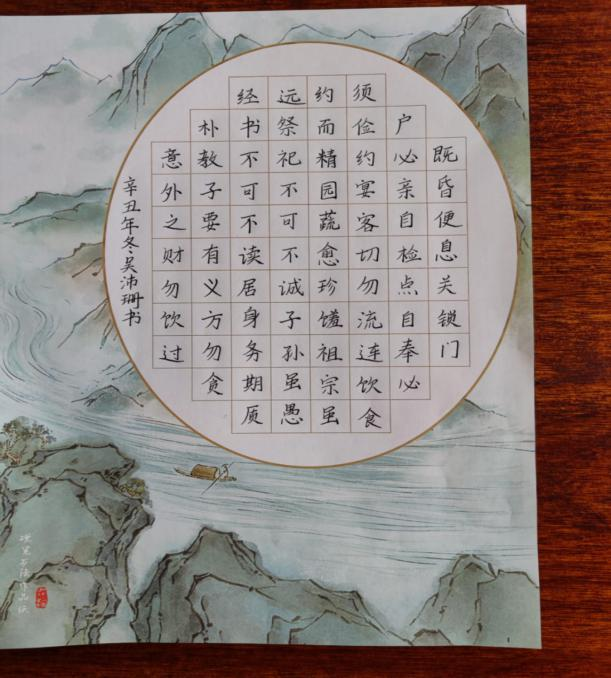 既昏便息关锁门
户必亲自检点自奉必
须俭约宴客切勿流连饮食
约而精园蔬愈珍馐祖宗虽
远祭祀不可不诚子孙虽愚
经书不可不读居身务期质
朴教子要有义方勿贪
意外之财勿饮过
辛丑年冬·吴沛珊书
硬笔书法作品纸